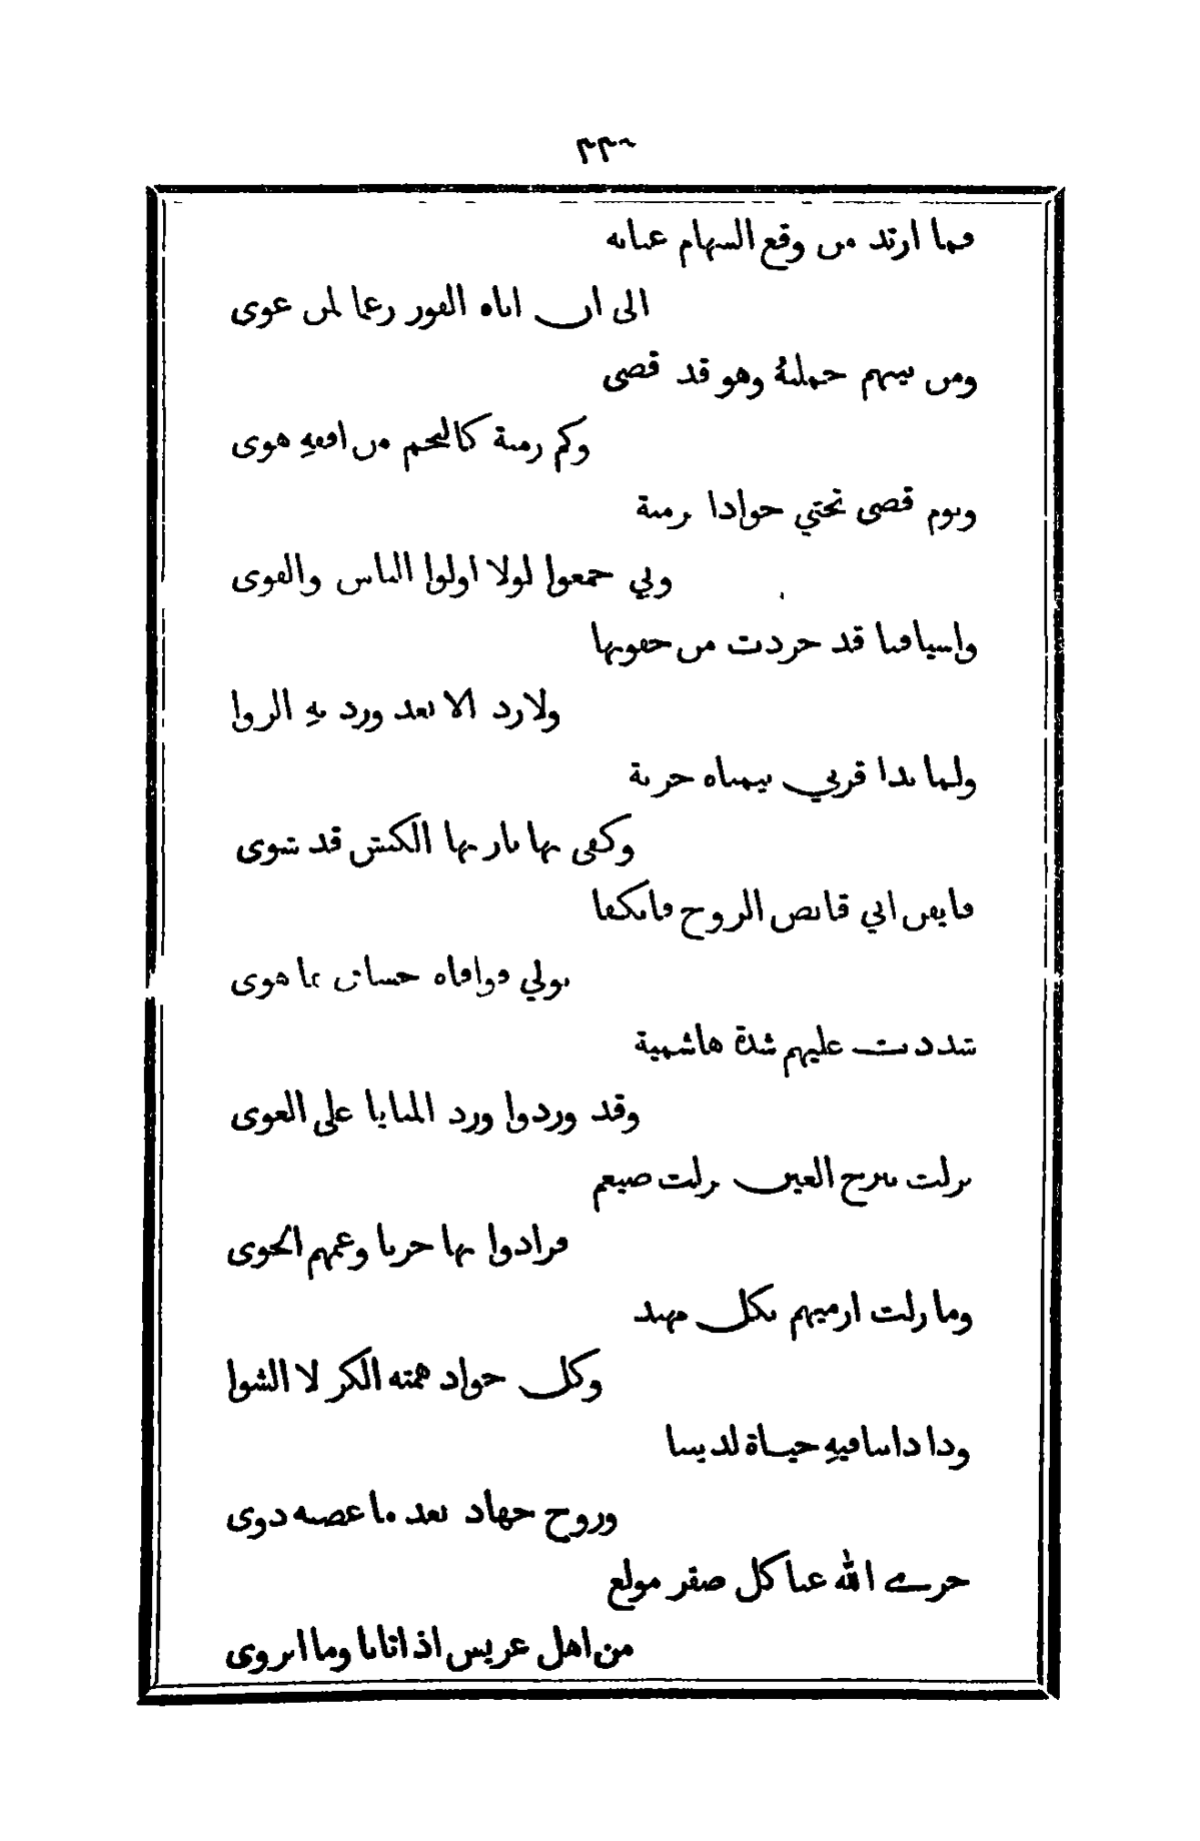 فما ارتد من وقع السهام عنانه
الى ان اتاه الفوز رغما لمن غوى
ومن بينهم حملتهُ وهو قد قضى
وكم رمية كالنجم من افقهِ هوى
ويوم قضى تحتي جوادا برمية
وبي جمعوا لولا اولوا البأس والقوى
واسيافنا قد جردت من جفونها
ولا رد الا بعد ورد بهِ الروا
ولما بدا قرني بيمناه حربة
وكفى بها نار بها الكبش قد شوى
فايقن اني قابض الروح فانكفا
يولي فوافاه حسامي بما هوى
شددت عليهم شدة هاشمية
وقد وردوا ورد المنايا على الغوى
نزلت ببرج العين نزلت ضيغم
فزادوا بها حزنا وعمهم الجوى
وما زلت ارميهم بكل مهند
وكل جواد همته الكر لا الشوا
وذا دابنا فيهِ حياة لديننا
وروح جهاد بعد ما غصنه ذوى
جزى الله عنا كل صقر مولع
من اهل غريس اذ اتانا وما انزوى